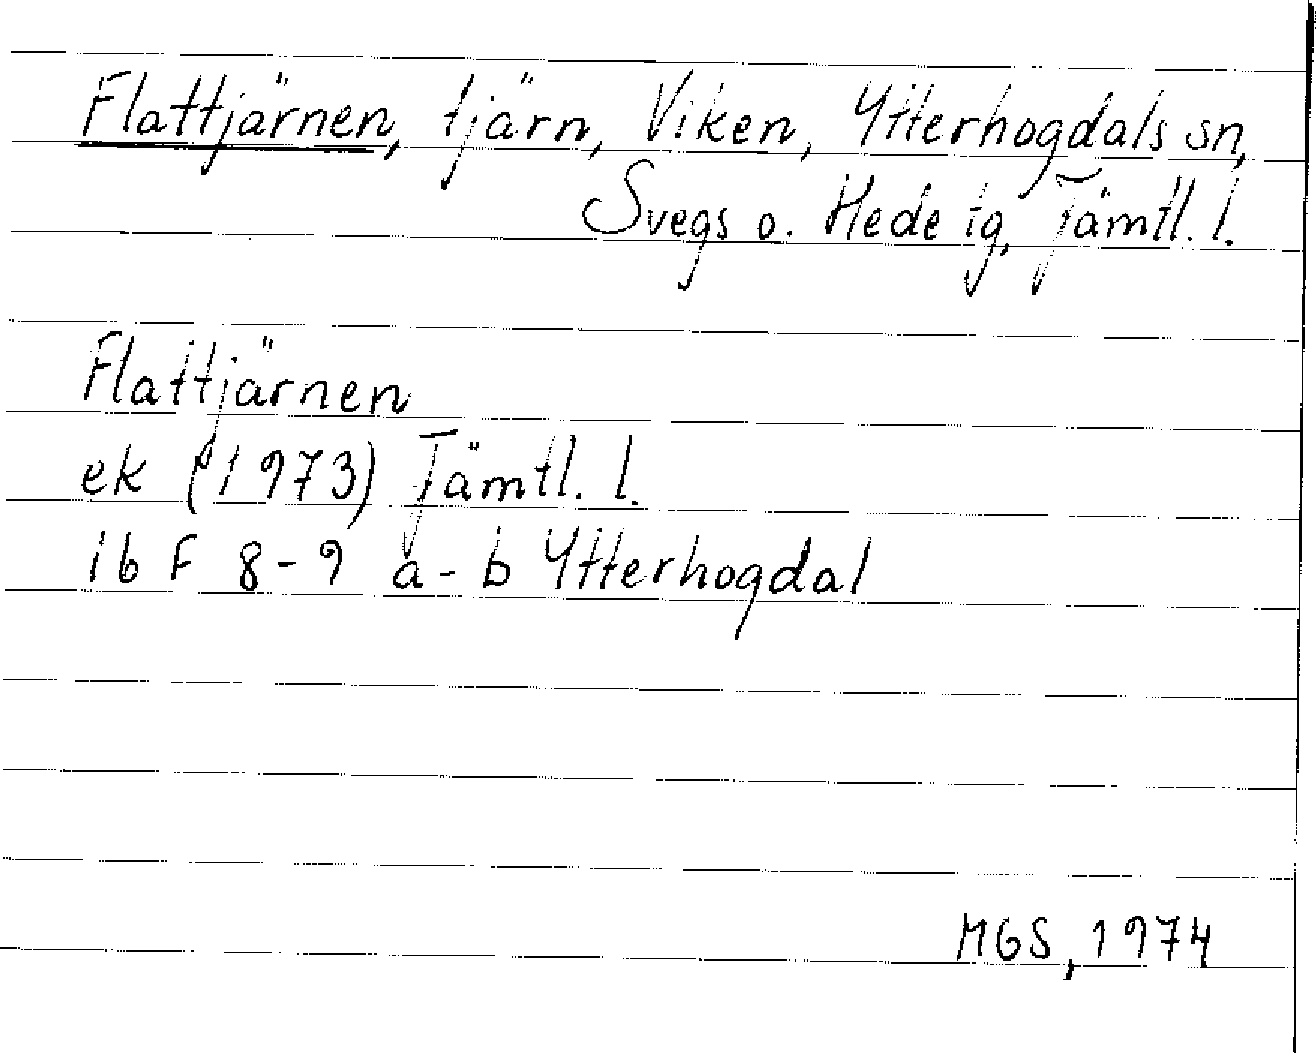 Flattjärnen, tjärn, Viken, Ytterhogdals sn,
Svegs o. Hede tg, Jämtl. l.
Flattjärnen
ek (1973) Jämtl. l.
16 F 8-9 a-b Ytterhogdal
MGS, 1974